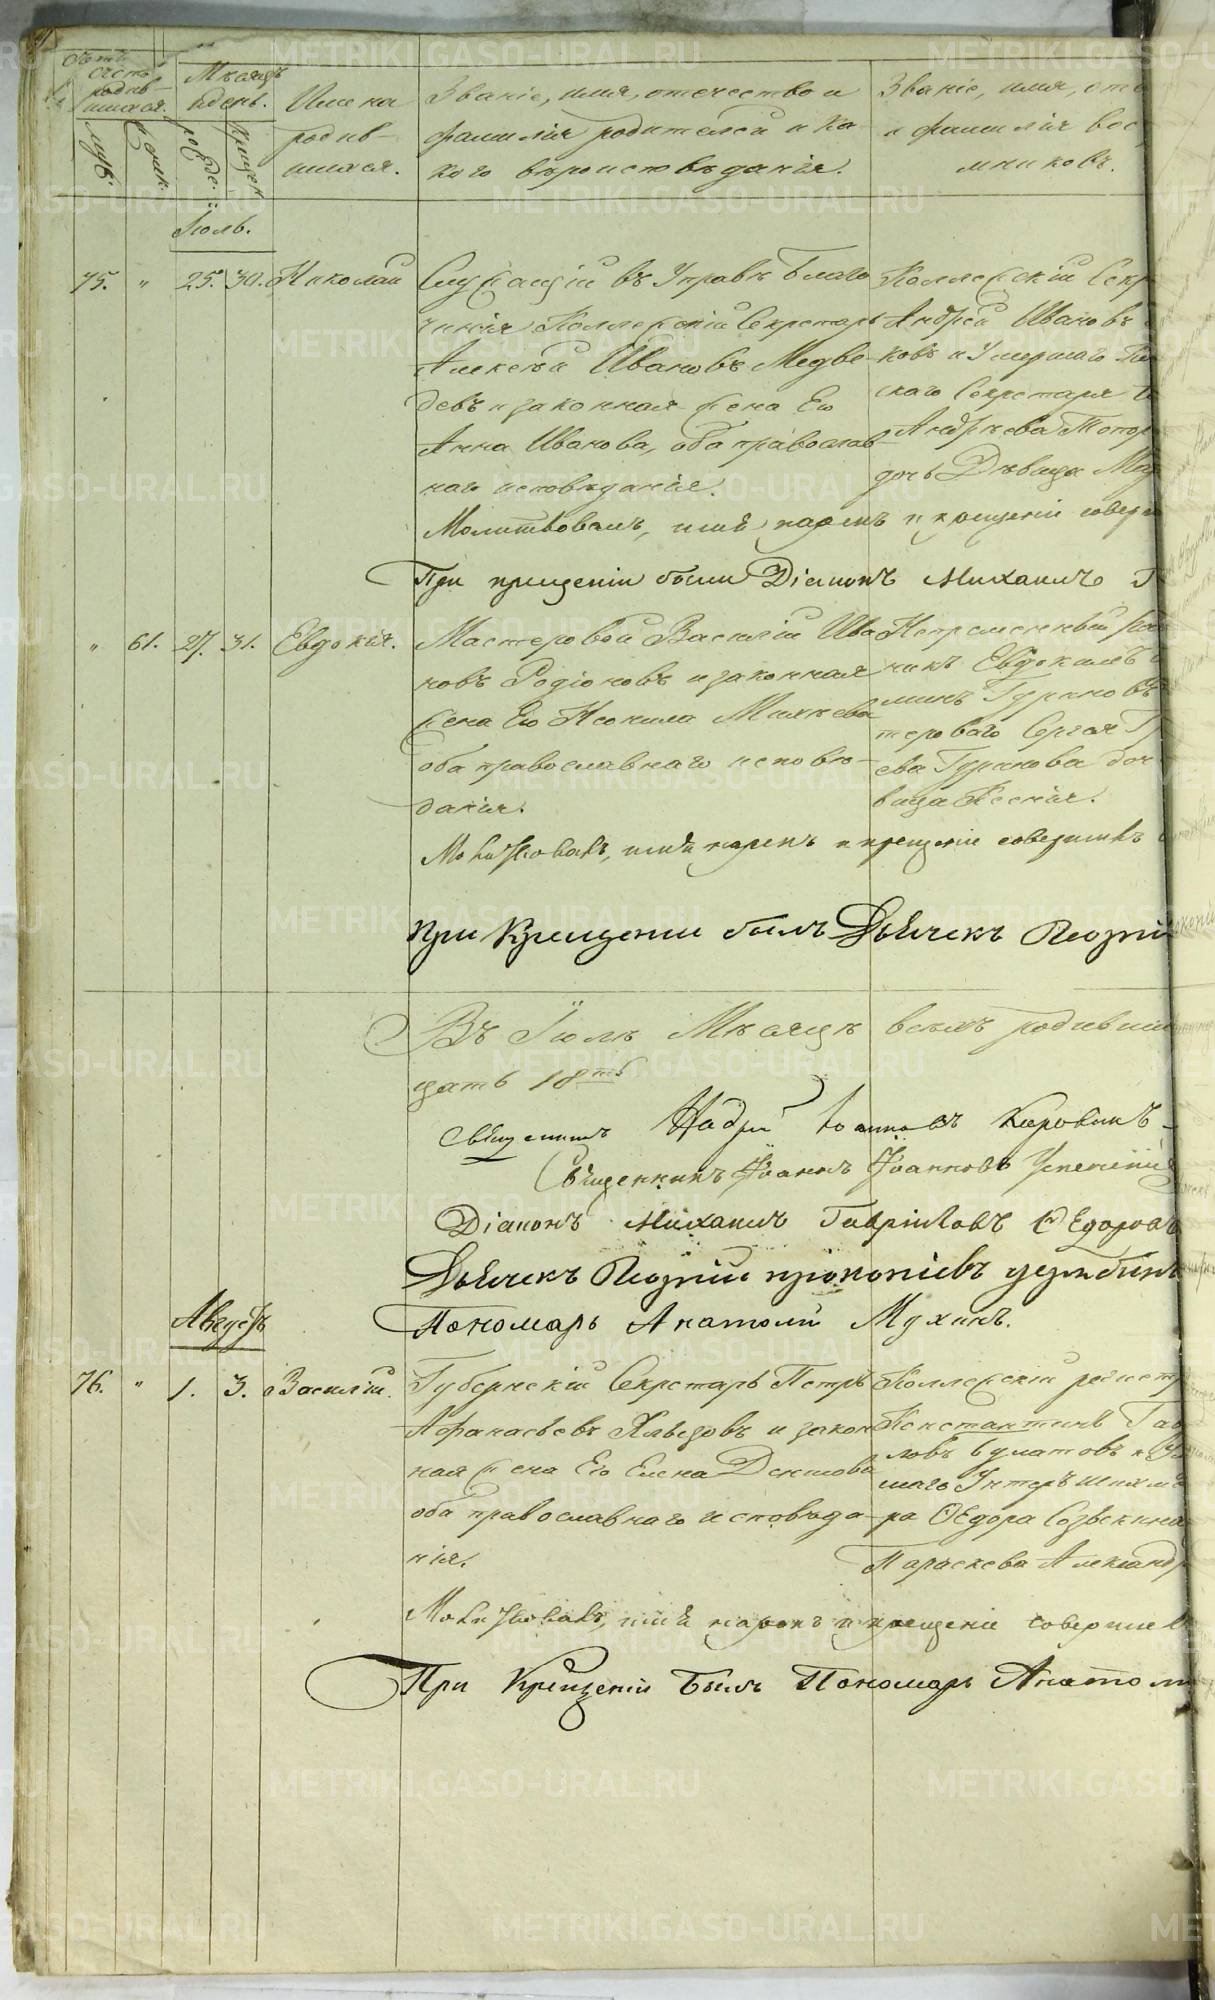 Мѣсяцъ
и день.
Имена
родив-
шихся.
Званіе, имя, отечество и
фамилія родителей и ка-
кого вѣроисповѣданія.
Званіе, имя, оте
и фамилія вос
мниковъ.
муж. женск. рожде. крещен.
Іюль.
75. " 25. 30. Николай
Служащій въ Управѣ Благо
чинія Коллежскій Секретарь
Алексѣй Ивановъ Медве-
девъ и законная жена Его
Анна Иванова, оба православ
наго исповѣданія.
Коллежскій Секр
Андрей Ивановъ
ковъ и Умершаго
скаго Секретаря
Андрѣева Топор
дочь Дѣвица Мар
Молитвовалъ, имя нарекъ и крещеніе соверш
При крещеніи былъ Діаконъ Михаилъ Г
" 61. 27. 31. Евдокія.
Мастеровой Василій Ива
новъ Родіоновъ и законная
жена Его Неонила Михѣева
оба православнаго исповѣ-
данія.
Непремѣнный Ра
никъ Евдокимъ
минъ Гуриновъ
тероваго Сергѣя Г
ева Гуринова доч
вица Ксенія.
Молитвовалъ, имя нарекъ и крещеніе совершилъ
При Крещеніи былъ Дьячекъ Георгій
Въ Іюлѣ Мѣсяцѣ всехъ родивши
цать 18ть
Священникъ Андрей Іоанновъ Кировинъ
Священникъ Іоаннъ Іоанновъ Успенскій
Діаконъ Михаилъ Гавріиловъ Ѳедоровъ
Дьячекъ Георгій Прокопіевъ
Пономарь Анатолій Мухинъ.
Августъ
76. " 1. 3. Василій.
Губернскій Секретарь Петръ
Афанасьевъ Хлѣбовъ и закон
ная жена Его Елена Денисова
оба православнаго исповѣда
нія.
Коллежскій регистр
Константинъ Гав
ловъ Булатовъ и Уме
шаго Унтеръ Шихмей
ра Ѳедора
Параскева Александр
Молитвовалъ, имя нарекъ и крещеніе совершил
При Крещеніи былъ Пономарь Анатолі
METRIKI.GASO-URAL.RU